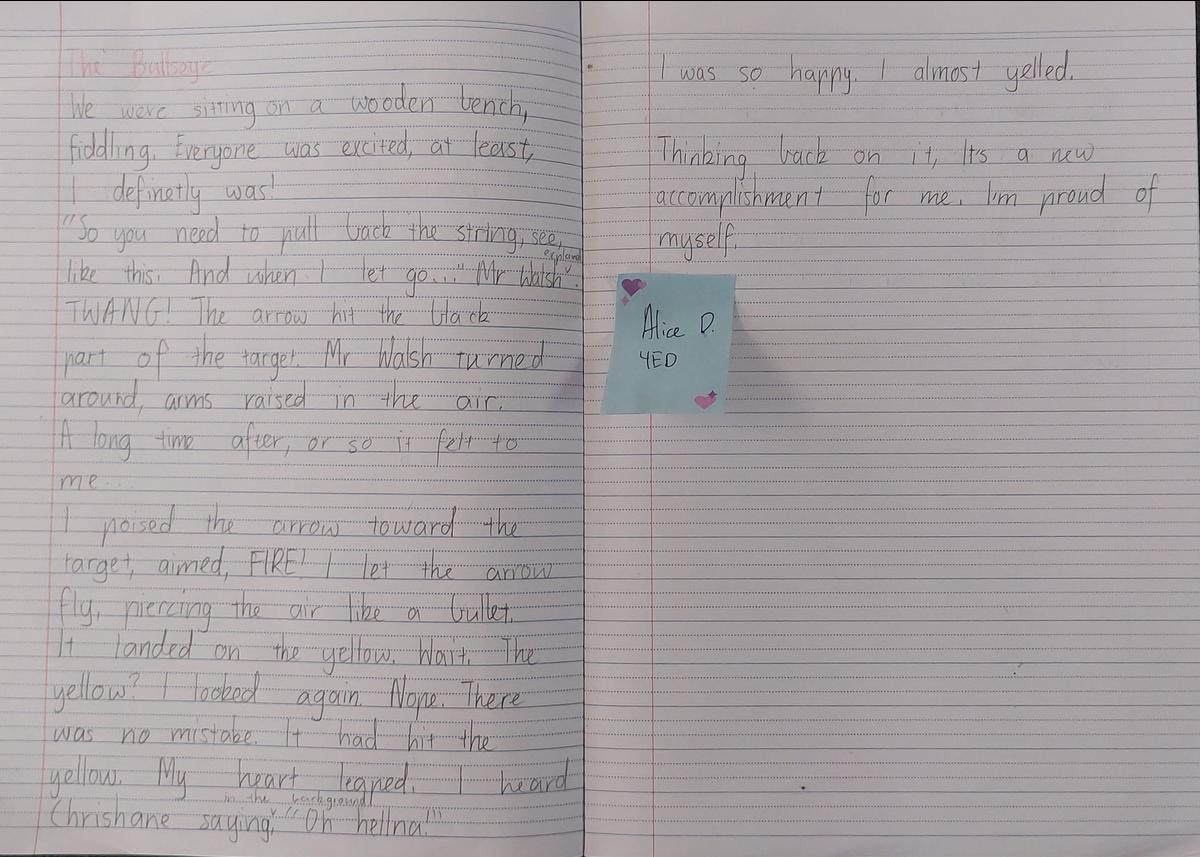 The Bullseye
We were sitting on a wooden bench,
fiddling. Everyone was excited, at least,
I definetly was!
"So you need to pull back the string, see,
like this. And when I let go..." Mr Walsh explaind.
TWANG! The arrow hit the black
part of the target. Mr Walsh turned
around, arms raised in the air.
A long time after, or so it felt to
me...
I poised the arrow toward the
target, aimed, FIRE! I let the arrow
fly, piercing the air like a bullet.
It landed on the yellow. Wait. The
yellow? I looked again. Nope. There
was no mistake. It had hit the
yellow. My heart leaped. I heard
Chrishane saying, in the background "Oh hellna!"
I was so happy. I almost yelled.
Thinking back on it, It's a new
accomplishment for me. I'm proud of
myself.
Alice D.
4ED